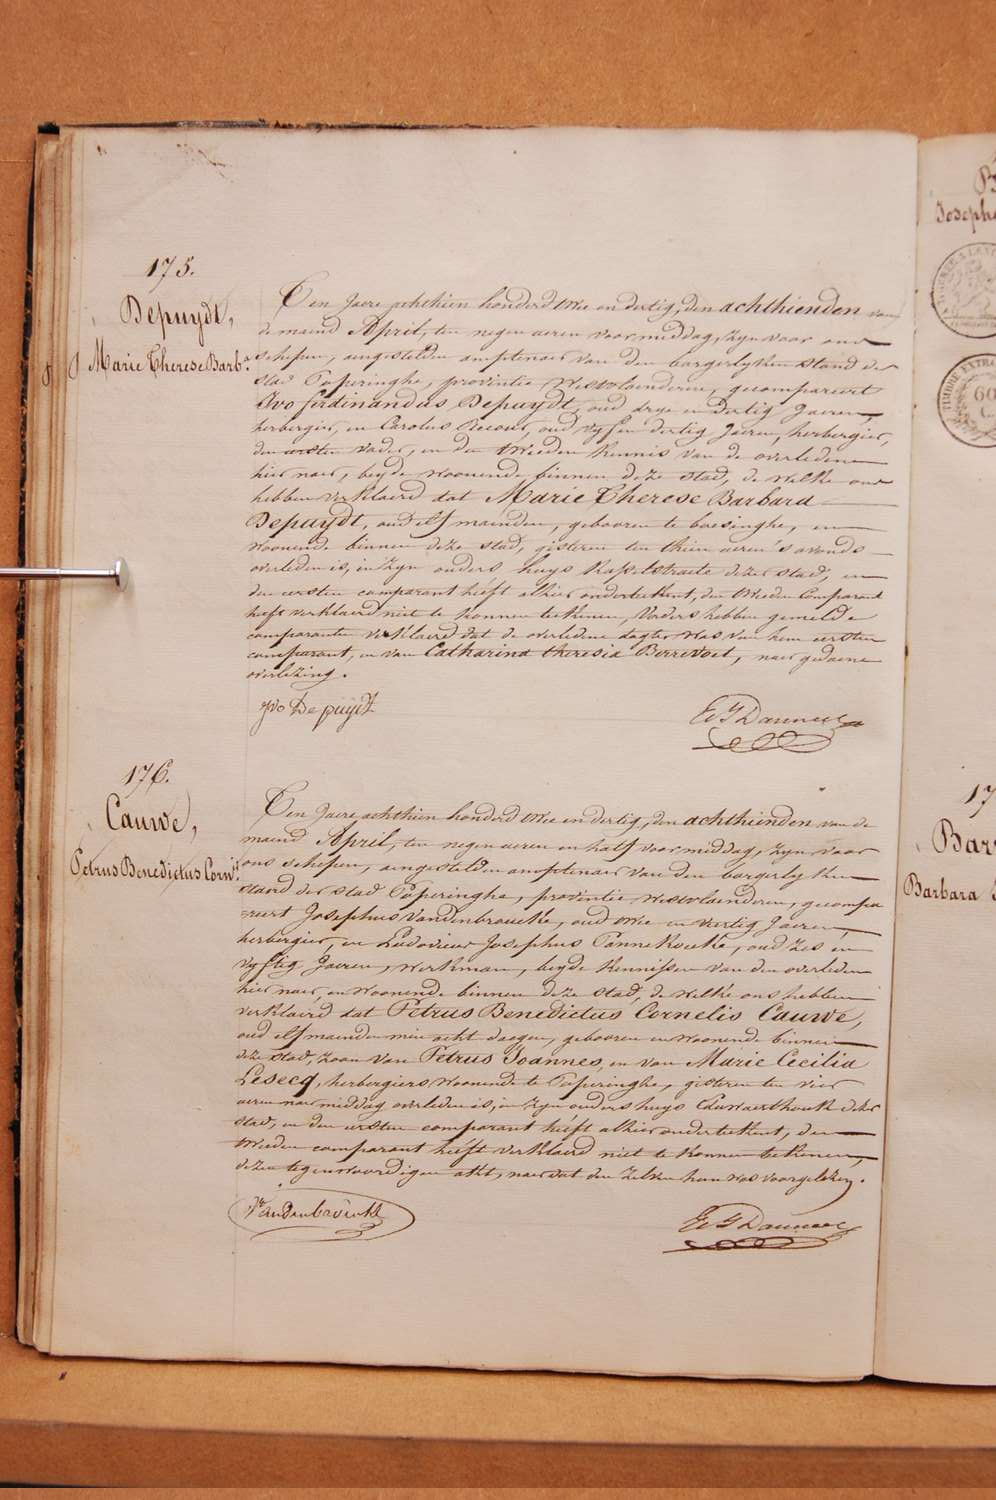 175.
Depuydt,
Marie Therese Barb.a
Ten Jaere achthien honderd twee en dertig, den achthienden van
de maend April, ten negen aeren voor middag, zyn voor ons
schepen, aengestelden amptenaer van den borgerlyken stand der
stad Poperinghe, provintie Westvlaenderen, gecompareert
Ivo Ferdinandus Depuydt, oud drye en dertig Jaeren,
herbergier, en Carolus oud vyf en dertig Jaeren, herbergier,
den eersten vader, en den tweeden kennis van de overledene
hier naer, beyde woonende binnen deze stad, de welke ons
hebben verklaerd dat Marie Therese Barbara
Depuydt, oud elf maenden, gebooren te boesinghe, en
woonende binnen deze stad, gisteren ten thien aeren 's avonds
overleden is, in zyn ouders huys kapelstraete dezer stad, en
den eersten comparant heéft alhier onderteekent, den tweeden Comparant
heéft verklaerd niet te konnen teekenen, Voorders hebben gemelde
comparanten verklaerd dat de overledene dogter was van hem eersten
comparant, en van Catharina theresia Berrevoet, naer gedaene
overlezing.
Ivo Depuÿdt
176.
Cauwe,
Petrus Benedictus Corn.s
Ten Jaere achthien honderd twee en dertig, den achthienden van de
maend April, ten negen aeren en half voor middag, zyn voor
ons schepen, aengestelden amptenaer van den borgerlyken
stand der stad Poperinghe, provintie Westvlaenderen, gecompa
=reert Josephus Vandenbrouckë, oud twee en viertig Jaeren
herbergier, en Ludovicus Josephus Pannekoucke, oud zes en
vyftig Jaeren, werkman, beyde kennissen van den overleden
hier naer, en woonende binnen deze stad, de welke ons hebben
verklaerd dat Petrus Benedictus Cornelis Cauwe,
oud elf maenden min acht daegen, gebooren en woonende binnen
deze stad, zoon van Petrus Joannes, en van Marie Cecilia
Lesecq, herbergiers woonende te Poperinghe, gisteren ten vier
aeren naer middag overleden is, in zyn ouders huys dezer
stad, en den eersten comparant heéft alhier onderteekent, den
tweeden comparant heéft verklaerd niet te konnen teekenen,
dezen tegenwoordigen akt, naer dat den zelven hun was voorgelezen.
Vandenbroucke